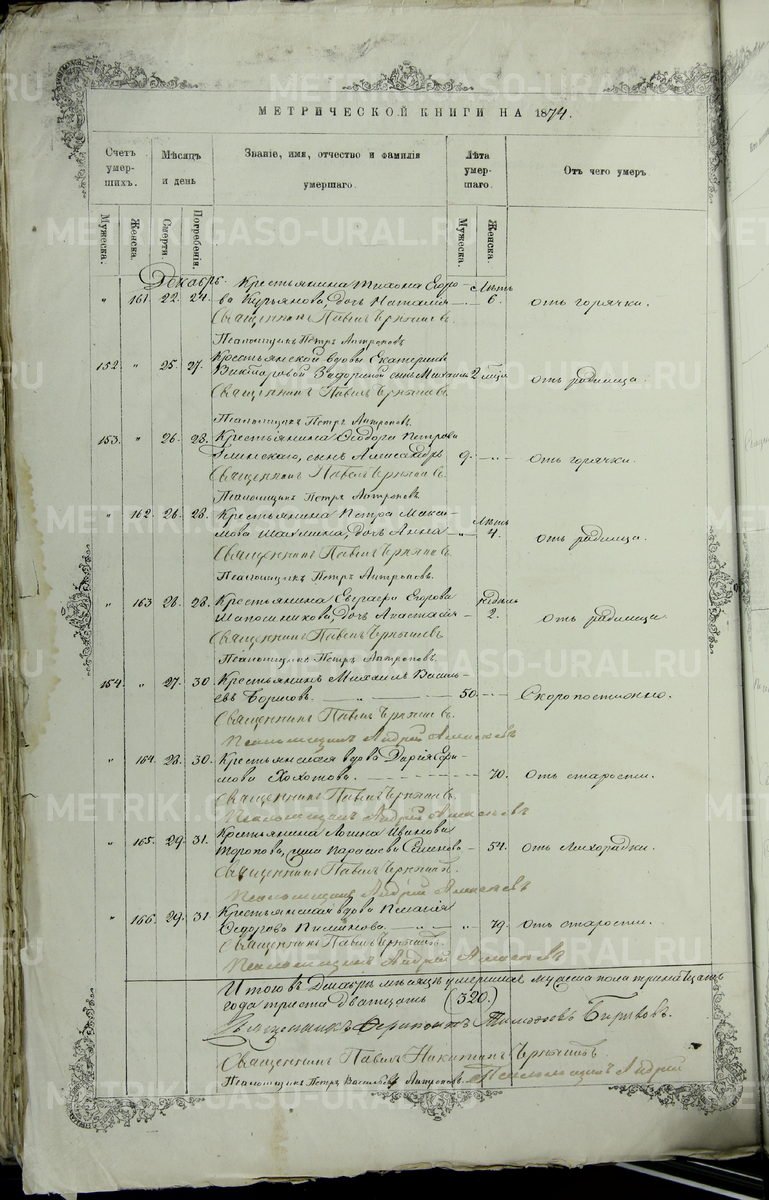 МЕТРИЧЕСКОЙ КНИГИ НА 1874.
Счетъ умер-шихъ.
Мѣсяцъ и день
Званіе, имя, отчество и фамилія умершаго.
Лѣта умер-шаго.
Отъ чего умеръ
Мужеска. Женска. Смерти. Погребенія. Мужеска. Женска.
Декабрь. Крестьянина Тихона Егоро- Лѣтъ
" 161. 22. 24. ва Курьянова, дочь Наталія 6. отъ горячки.
Священникъ Павелъ Чернышевъ.
Псаломщикъ Петръ Антроповъ
Крестьянской вдовы Екатерины
152. " 25. 27. Задориной сынъ Михаилъ 2 отъ родимца.
Священникъ Павелъ Чернышевъ.
Псаломщикъ Петръ Антроповъ.
Крестьянина Ѳеодора Петрова
153. " 26. 28. сынъ Александръ 9. отъ горячки.
Священникъ Павелъ Чернышевъ.
Псаломщикъ Петръ Антроповъ
Крестьянина Петра Макси- Лѣтъ
" 162. 26. 28. мова дочь Анна 4. отъ родимца.
Священникъ Павелъ Чернышевъ.
Псаломщикъ Петръ Антроповъ.
Крестьянина Евграфа Егорова Недѣль
" 163 26. 28. Шапошникова, дочь Анастасія 2. отъ родимца.
Священникъ Павелъ Чернышевъ
Псаломщикъ Петръ Антроповъ.
Крестьянинъ Михаилъ Василь-
154. " 27. 30. евъ Борисовъ. 50. Скоропостижно.
Священникъ Павелъ Чернышевъ.
Псаломщикъ Андрей Алексѣевъ
Крестьянская вдова Дарія Ефи-
" 164. 28. 30. мова Хохотова. 70. отъ старости.
Священникъ Павелъ Чернышевъ.
Псаломщикъ Андрей Алексѣевъ
Крестьянина Логина Иванова
" 165. 29. 31. Торопова, жена Параскева Семенова 54. отъ лихорадки.
Священникъ Павелъ Чернышевъ.
Псаломщикъ Андрей Алексѣевъ
Крестьянская вдова Пелагія
" 166. 29. 31 Ѳедорова Пименова. 79. отъ старости.
Священникъ Павелъ Чернышевъ.
Псаломщикъ Андрей Алексѣевъ
Итого въ Декабрѣ мѣсяцѣ умершихъ мужеска пола
года триста двадцать (320.)
Священникъ Бирюковъ.
Священникъ Павелъ Никитинъ Чернышевъ.
Псаломщикъ Петръ Васильевъ Антроповъ. Псаломщикъ Андрей
METRIK.GASO-URAL.RU